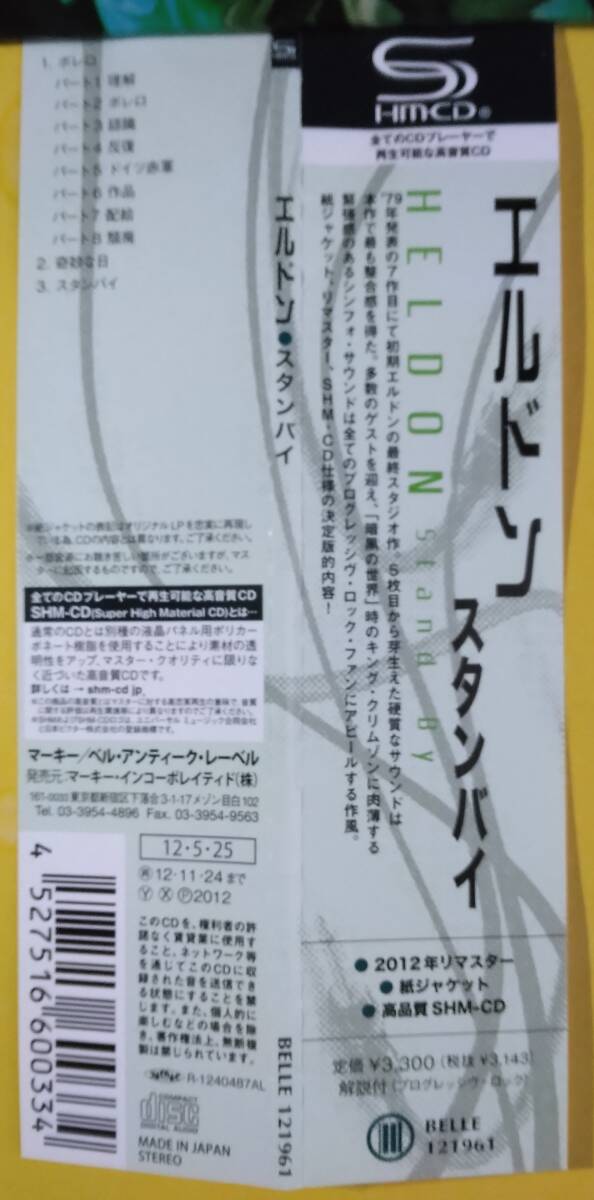 1. ボレロ
パート1 理解
パート2 ボレロ
パート3 認識
パート4 反復
パート5 ドイツ赤軍
パート6 作品
パート7 配給
パート8 頽廃
2. 奇妙な日
3. スタンバイ
※紙ジャケットの表記はオリジナルLPを忠実に再現し
ている為、CDの内容とは異なります。ご了承ください。
※一部音源にお聴き苦しい箇所がございますが、マス
ターに起因するものですので、ご了承ください。
全てのCDプレーヤーで再生可能な高音質CD
SHM-CD(Super High Material CD)とは…
通常のCDとは別種の液晶パネル用ポリカー
ボネート樹脂を使用することにより素材の透
明性をアップ、マスター・クオリティに限りな
く近づいた高音質CDです。
詳しくは → shm-cd jp
※この商品の高音質とはマスターに対する高忠実再生の意味で、音質
に関する評価は再生環境等により異なりますのでご了承ください。
※SHMおよびSHM-CDロゴは、ユニバーサル ミュージック合同会社
と日本ビクター株式会社の登録商標です。
マーキー/ベル・アンティーク・レーベル
発売元:マーキー・インコーポレイティド(株)
161-0033 東京都新宿区下落合3-1-17メゾン目白102
Tel. 03-3954-4896 Fax. 03-3954-9563
4 527516 600334
12・5・25
12・11・24まで
Ⓨ Ⓧ Ⓟ2012
このCDを、権利者の許
諾なく賃貸業に使用す
ること、ネットワーク等
を通じてこのCDに収
録された音を送信でき
る状態にすることを禁
じます。また、個人的に
楽しむなどの場合を除
き、著作権法上、無断複
製は禁じられています。
R-1240487AL
COMPACT
disc
DIGITAL AUDIO
MADE IN JAPAN
STEREO
エルドン●スタンバイ
BELLE 121961
SHM-CD®
全てのCDプレーヤーで
再生可能な高音質CD
エルドン
スタンバイ
HELDON Stand By
'79年発表の7作目にて初期エルドンの最終スタジオ作。5枚目から芽生えた硬質なサウンドは
本作で最も整合感を得た。多数のゲストを迎え、「暗黒の世界」時のキング・クリムゾンに肉薄する
緊張感のあるシンフォ・サウンドは全てのプログレッシヴ・ロック・ファンにアピールする作風。
紙ジャケット、リマスター、SHM-CD仕様の決定版的内容!
● 2012年リマスター
● 紙ジャケット
● 高品質SHM-CD
定価 ¥3,300(税抜 ¥3,143)
解説付(プログレッシヴ・ロック)
BELLE
121961